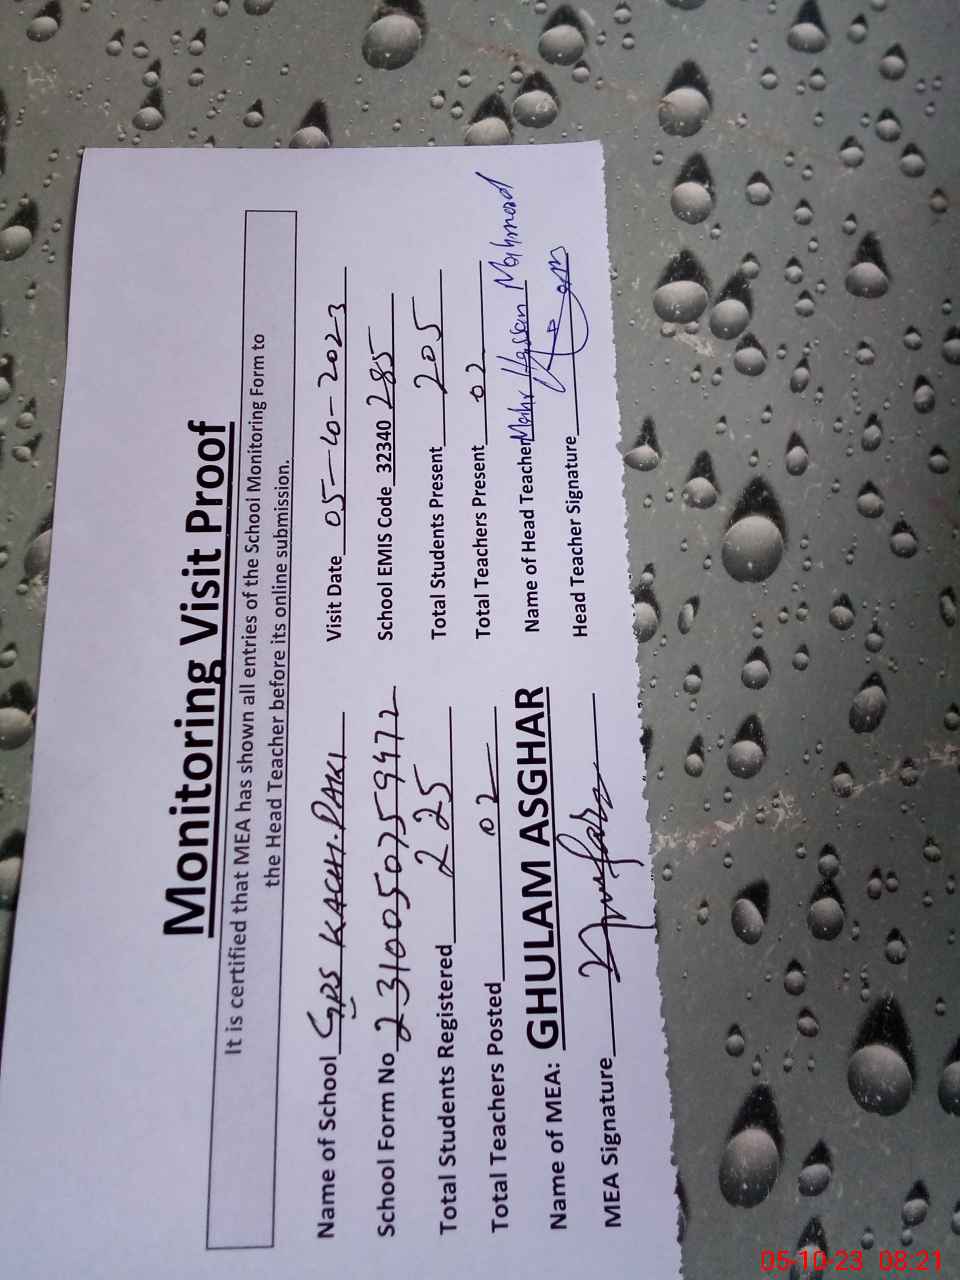 Monitoring Visit Proof
It is certified that MEA has shown all entries of the School Monitoring Form to
the Head Teacher before its online submission.
Name of School GPS KACHI PAKKI Visit Date 05-10-2023
School Form No 2310050759472 School EMIS Code 32340 285
Total Students Registered 225 Total Students Present 205
Total Teachers Posted 02 Total Teachers Present 02
Name of MEA: GHULAM ASGHAR Name of Head Teacher Mahr Hassan Mahmood
MEA Signature Head Teacher Signature
05-10-23 08:21